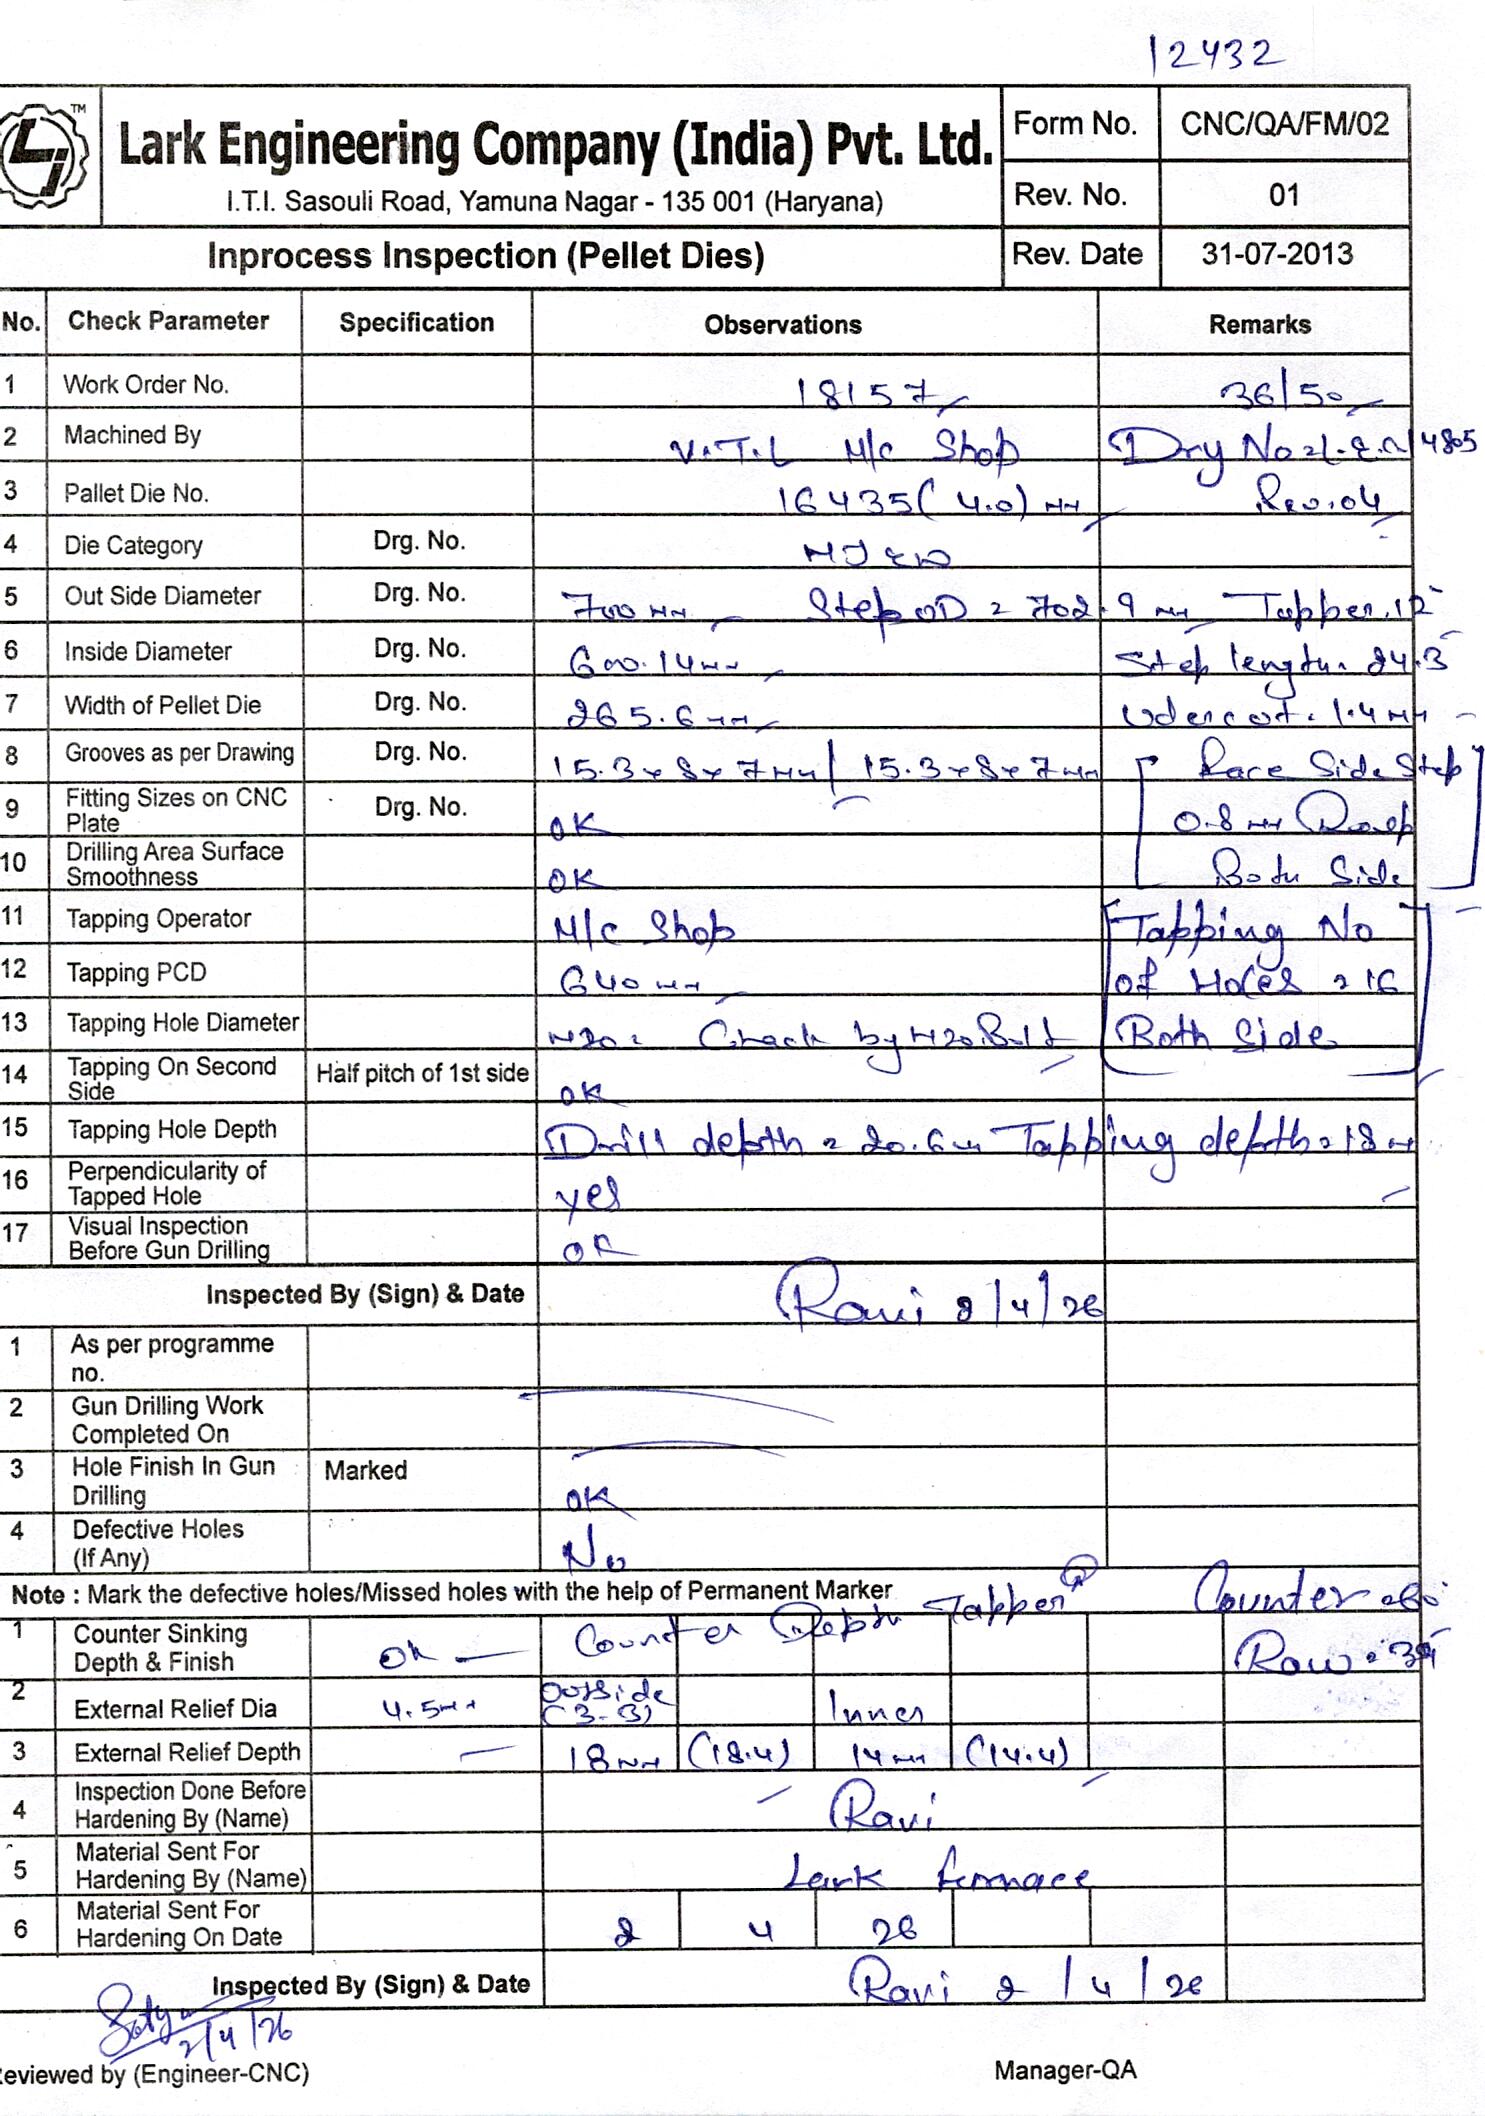 12432
TM
Lark Engineering Company (India) Pvt. Ltd.
I.T.I. Sasouli Road, Yamuna Nagar - 135 001 (Haryana)
Form No. CNC/QA/FM/02
Rev. No. 01
Inprocess Inspection (Pellet Dies) Rev. Date 31-07-2013
No. Check Parameter Specification Observations Remarks
1 Work Order No. 18157 36/50
2 Machined By V.T.L M/c Shop
3 Pallet Die No. 16435 (4.0) MM Rev.04
4 Die Category Drg. No.
5 Out Side Diameter Drg. No. 700 MM Step OD = 702.9 MM Tapper.12
6 Inside Diameter Drg. No. 600.14 MM Step length. 24.3
7 Width of Pellet Die Drg. No. 265.6 MM 1.4 MM
8 Grooves as per Drawing Drg. No. 15.3 x 8 x 7 MM / 15.3 x 8 x 7 MM Race Side Step
9 Fitting Sizes on CNC Plate Drg. No. OK 0.8 MM
10 Drilling Area Surface Smoothness OK Both Side
11 Tapping Operator M/c Shop Tapping No
12 Tapping PCD 640 MM of Holes = 16
13 Tapping Hole Diameter M20 = Check by M20 Bolt Both Side
14 Tapping On Second Side Half pitch of 1st side OK
15 Tapping Hole Depth Drill depth = 20.6 MM Tapping depth = 18 MM
16 Perpendicularity of Tapped Hole yes
17 Visual Inspection Before Gun Drilling OK
Inspected By (Sign) & Date Ravi 2/4/26
1 As per programme no.
2 Gun Drilling Work Completed On
3 Hole Finish In Gun Drilling Marked OK
4 Defective Holes (If Any) No
Note : Mark the defective holes/Missed holes with the help of Permanent Marker
1 Counter Sinking Depth & Finish OK Counter Depth Tapper Counter
2 External Relief Dia 4.5 MM Outside (3-3) Inner
3 External Relief Depth 18 MM (18.4) 14 MM (14.4)
4 Inspection Done Before Hardening By (Name) Ravi
5 Material Sent For Hardening By (Name) Lark furnace
6 Material Sent For Hardening On Date 2 4 26
Inspected By (Sign) & Date Ravi 2/4/26
2/4/26
eviewed by (Engineer-CNC) Manager-QA